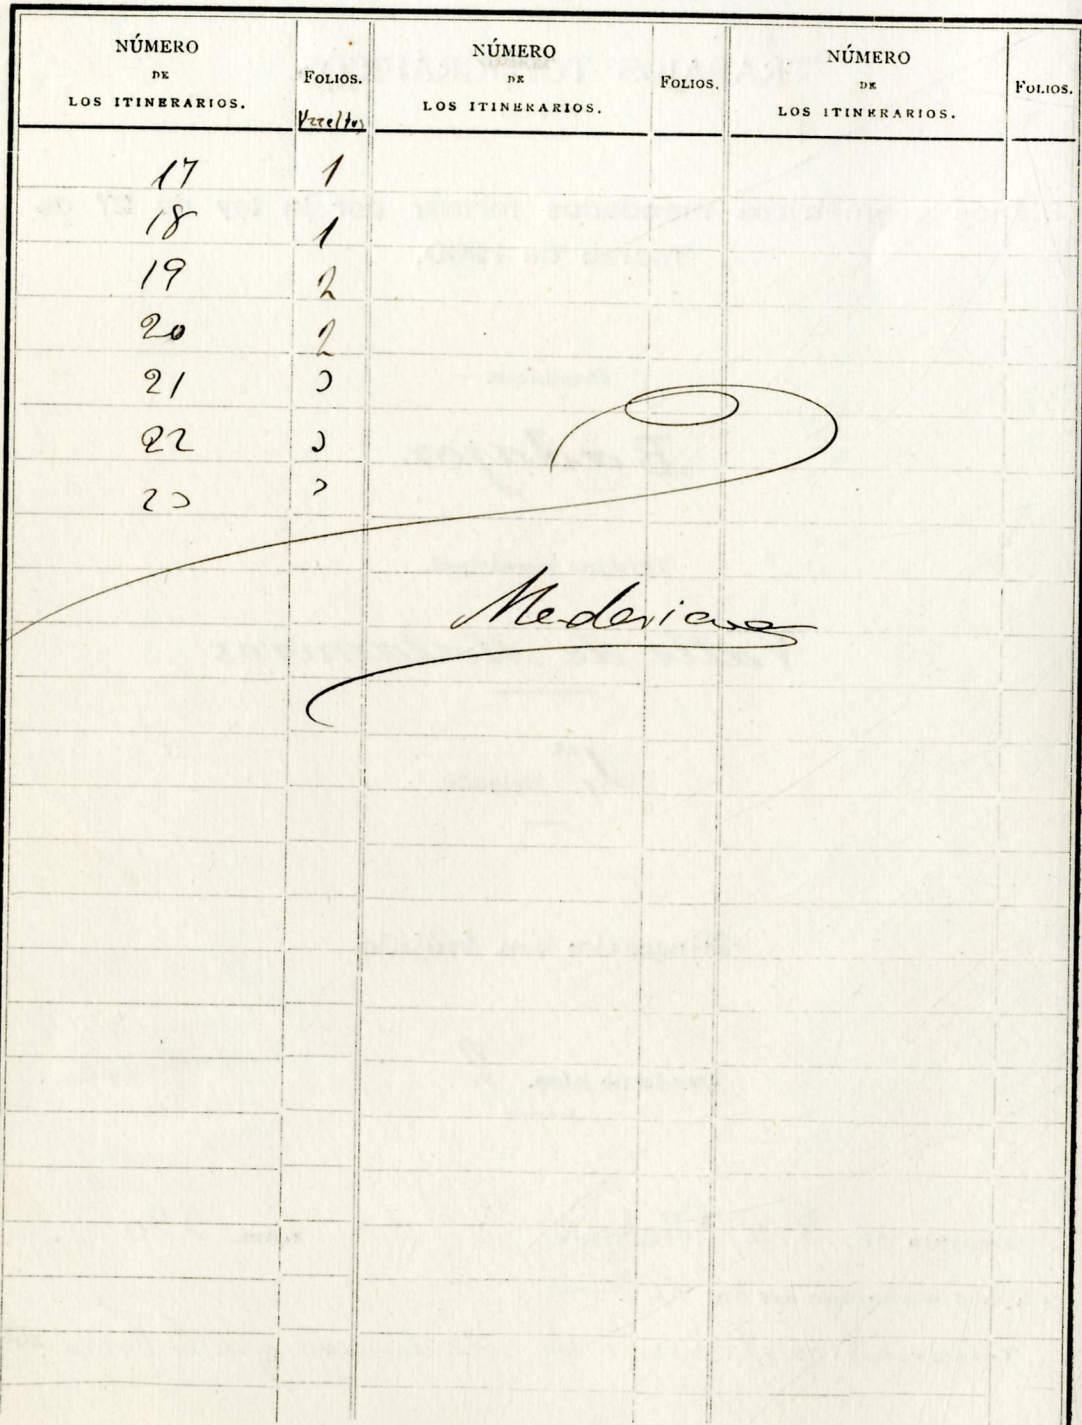 NÚMERO
DE
LOS ITINERARIOS.
FOLIOS.
Vueltos
NÚMERO
DE
LOS ITINERARIOS.
FOLIOS.
NÚMERO
DE
LOS ITINERARIOS.
FOLIOS.
17 1
18 1
19 2
20 2
21 3
22 3
23 3